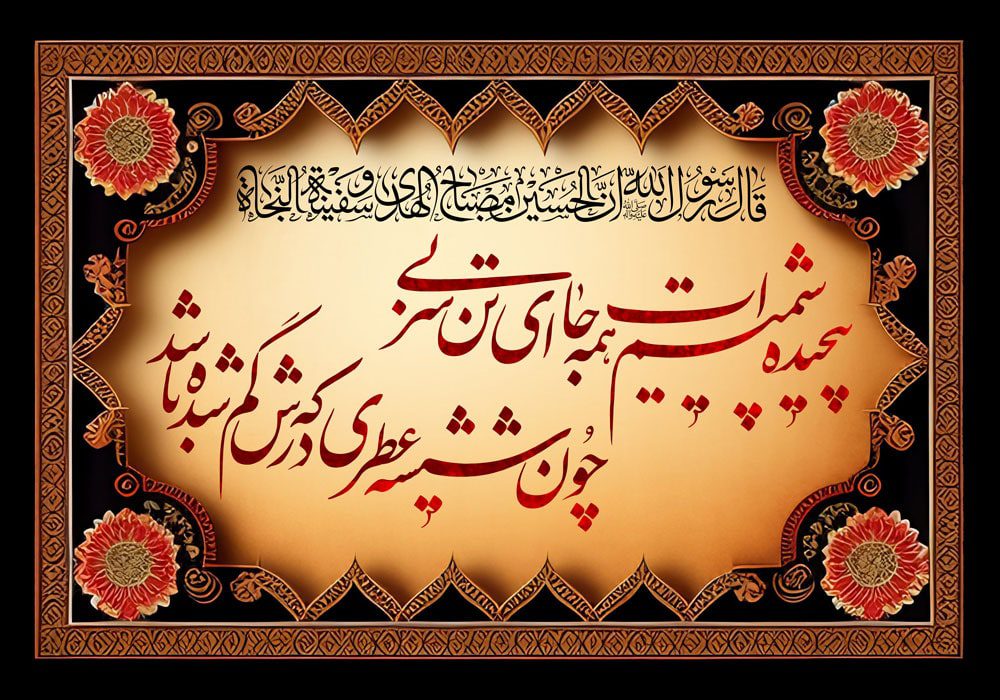 قال رسول الله ﷺ ان الحسین مصباح الهدی و سفینة النجاة
پیچیده شمیمت همه جا ای تن بی سر
چون شیشه عطری که درش گم شده باشد